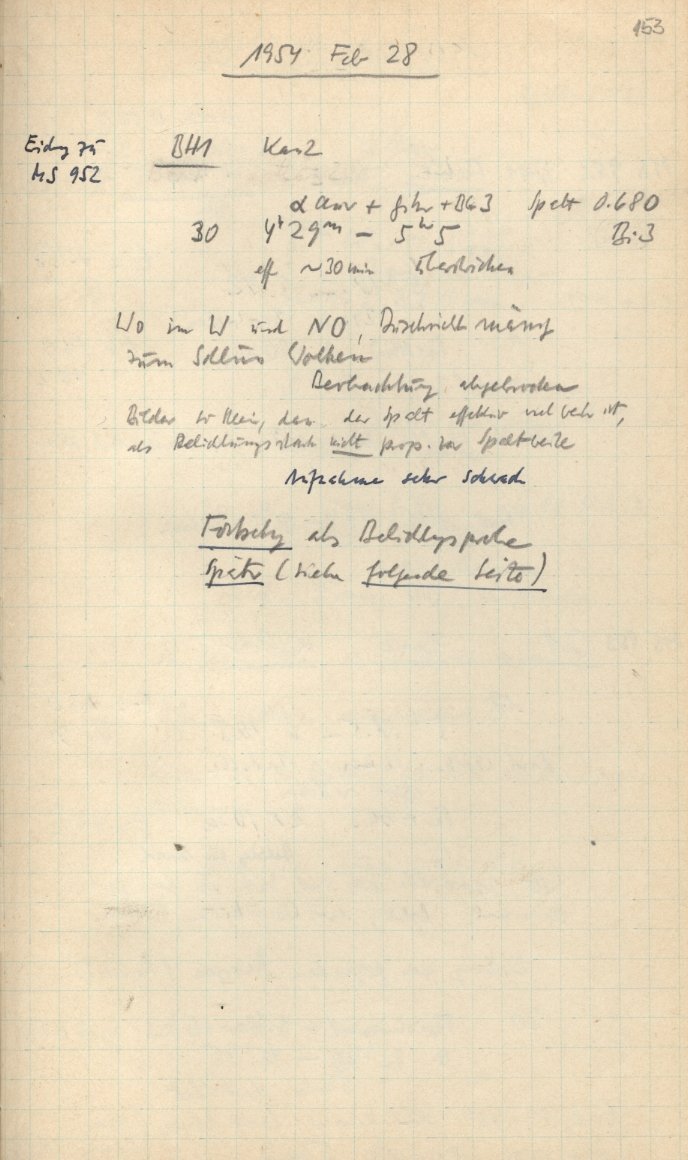 153
1954 Feb 28
Eichg zu
MS 952
BH1 Kan2
α Aur + + BG3 Spalt 0.680
30 4h 29m - 5h 5 Bi 3
eff ~30 min überstrichen
Wo im W und NO, Durchsicht mässig
zum Schluss Wolken
Beobachtung abgebrochen
Bilder so klein, dass der Spalt effektiv viel ist,
als nicht prop. zur Spaltbreite
Aufnahme sehr schwach
Fortsetzg als Belichtgsprobe
später (siehe folgende Seite)